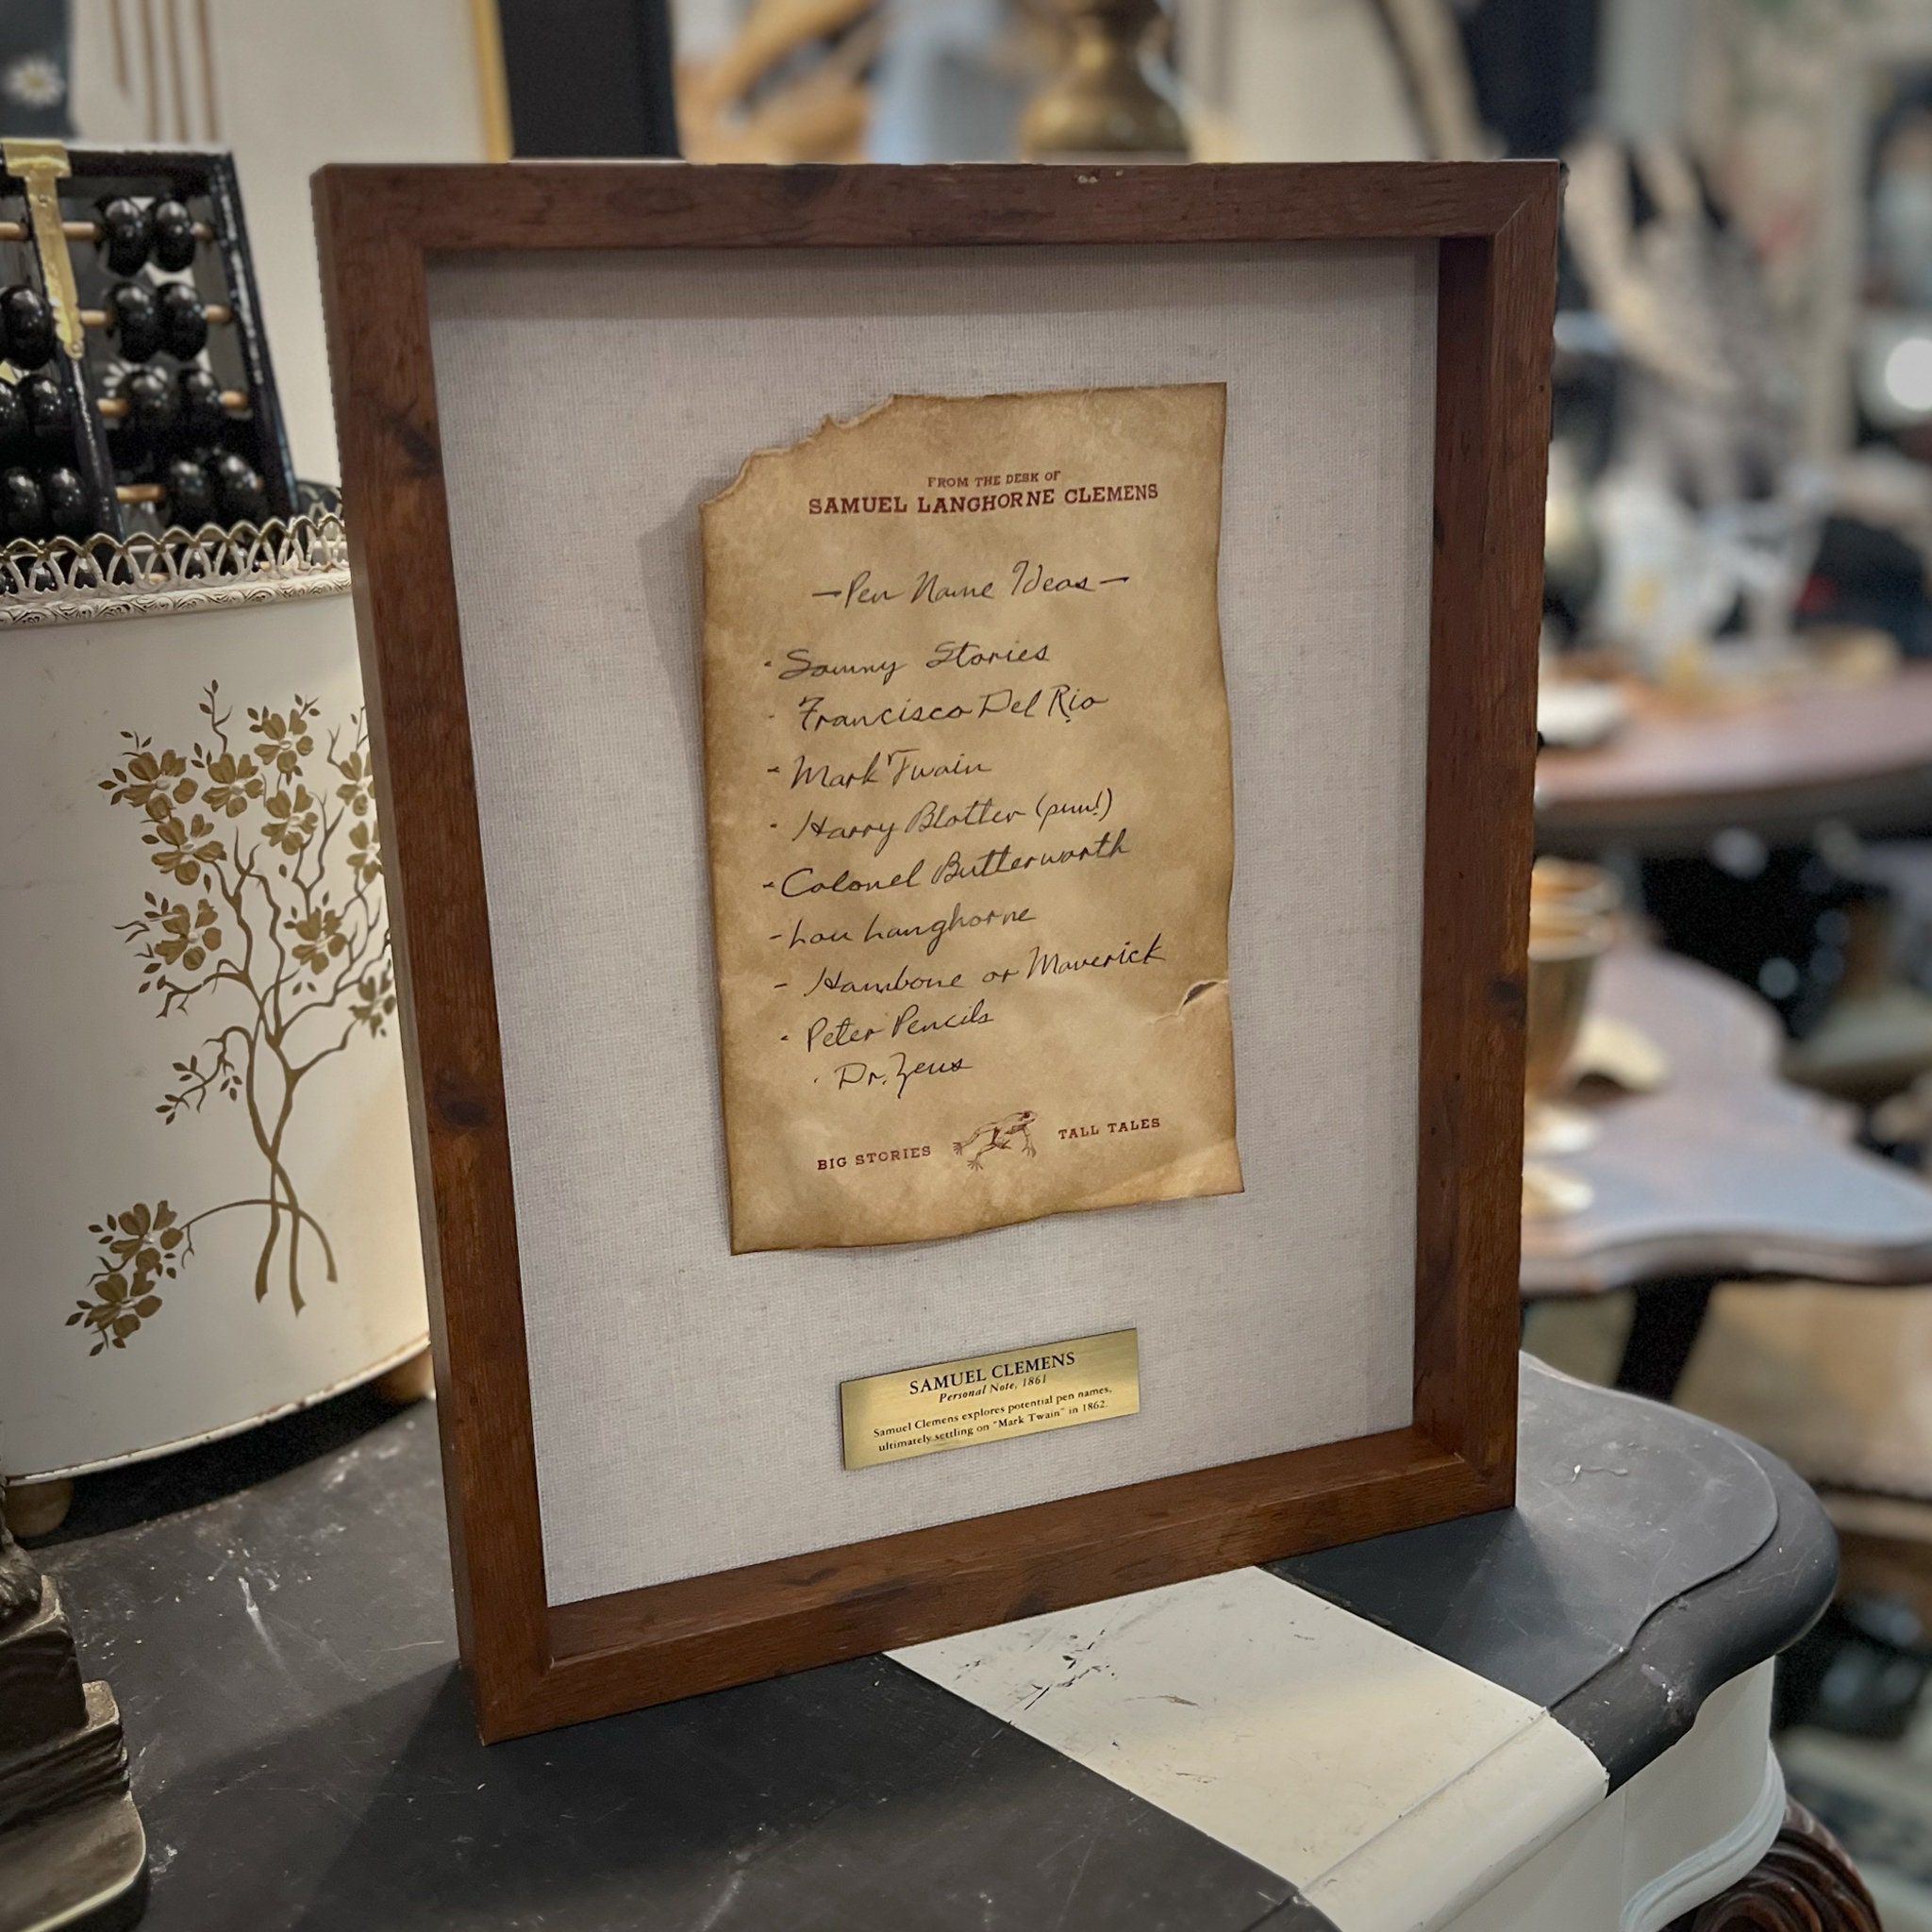 FROM THE DESK OF
SAMUEL LANGHORNE CLEMENS
—Pen Name Ideas—
- Sammy Stories
- Francisco Del Rio
- Mark Twain
- Harry Blotter (pun!)
- Colonel Butterworth
- Lou Langhorne
- Hambone or Maverick
- Peter Pencils
- Dr. Zeus
BIG STORIES TALL TALES
SAMUEL CLEMENS
Personal Note, 1861
Samuel Clemens explores potential pen names,
ultimately settling on "Mark Twain" in 1862.